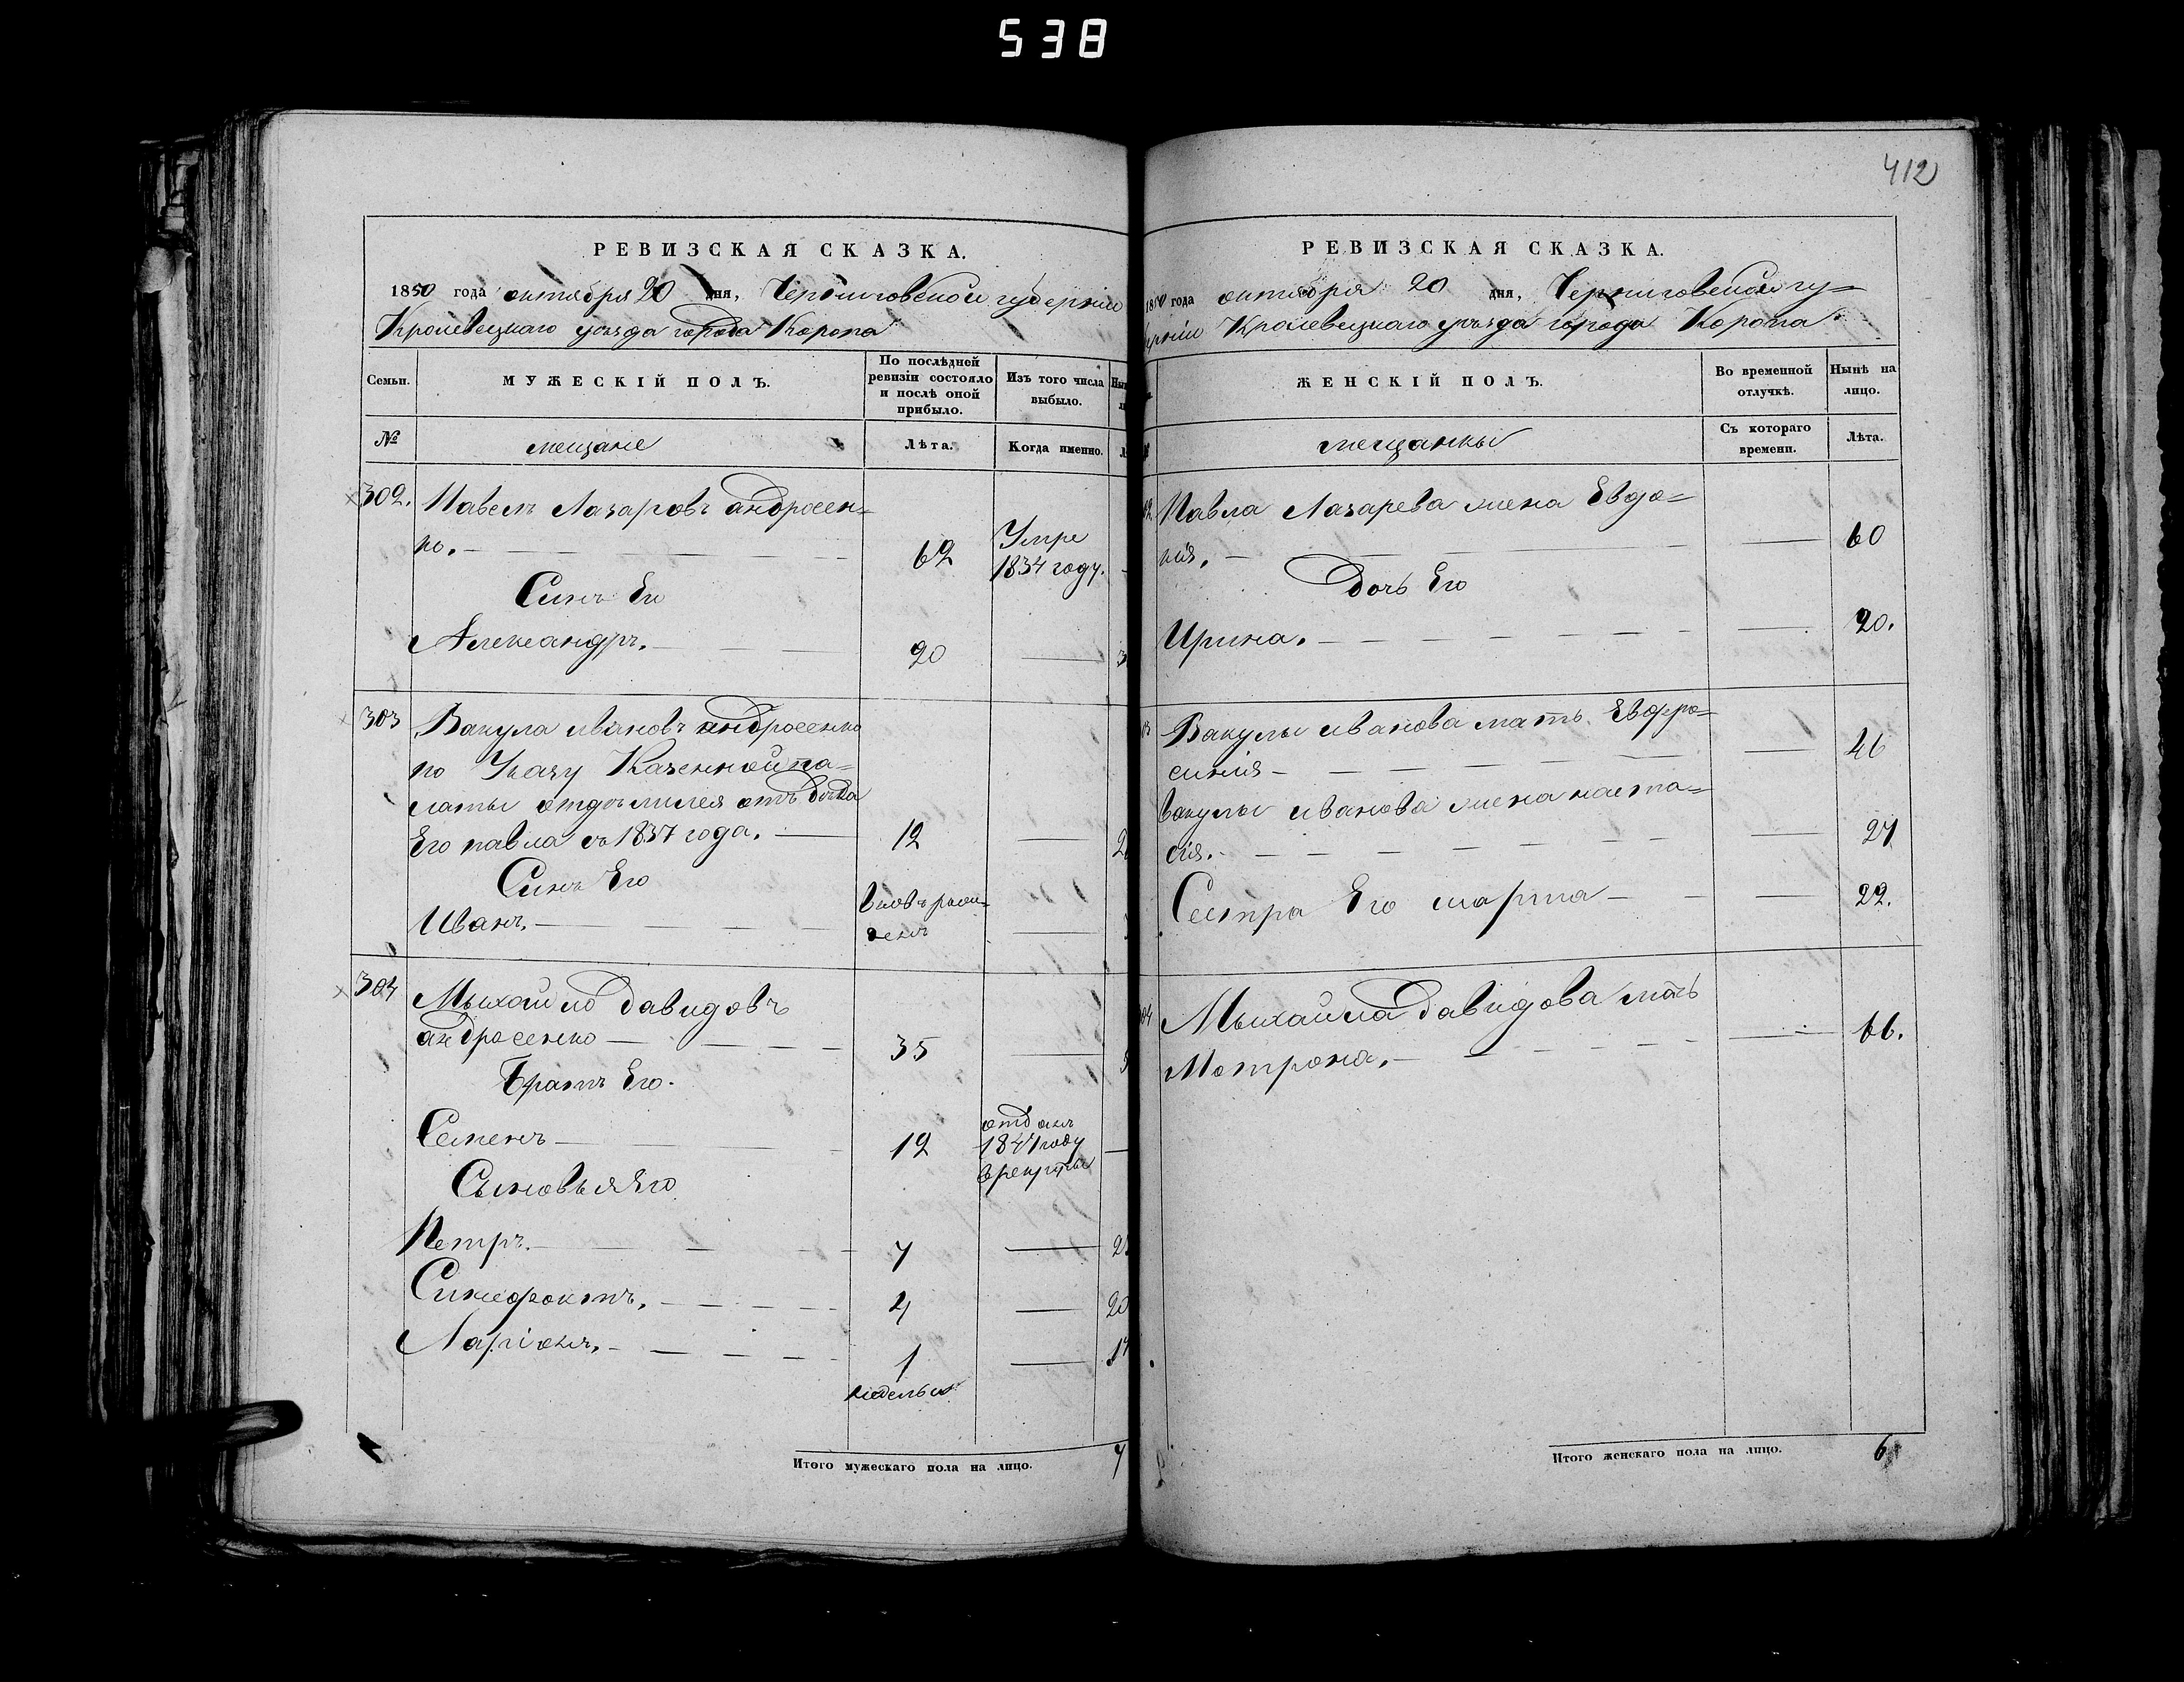 538
412
РЕВИЗСКАЯ СКАЗКА.
1850 года октября 20 дня, Черниговской губерніи
Кролевецкаго уѣзда города Коропа
Семьи.
МУЖЕСКІЙ ПОЛЪ.
По послѣдней
ревизіи состояло
и послѣ оной
прибыло.
Изъ того числа
выбыло.
№
мещане
Лѣта.
Когда именно.
302. Павелъ Лазаровъ андросен=
ко. 62 Умре
1834 году.
Синъ Его
Александръ. 20
303 Вакула ивановъ андросенко
по Указу Казенной па=
латы отдѣлился отъ дѣда
Его павла съ 1837 года. 12
Синъ Его
Иванъ. вновъ рож=
денъ
304 Мыхайло давидовъ
андросенко 35
Братъ Его.
Семенъ 12 отданъ
1847 году
в рекруты
Сыновья Его
Петръ. 7
Синефонтъ. 4 20
Ларіонъ. 1
неделья
Итого мужескаго пола на лицо. 7
РЕВИЗСКАЯ СКАЗКА.
1850 года октября 20 дня, Черниговской гу=
берніи Кролевецкаго уѣзда города Коропа.
ЖЕНСКІЙ ПОЛЪ.
Во временной
отлучкѣ.
Нынѣ на
лицо.
мещанкы
Съ котораго
времени.
Лѣта.
Павла Лазарева жена Евдо=
кія. 60
дочь Его
Ирина. 20.
Вакулы иванова мать Евфро=
синия 46
вакулы иванова жена наста=
сія. 27
Сестра Его марта 22.
Мыхайла давидова мать
Мотрона. 66.
Итого женскаго пола на лицо. 6